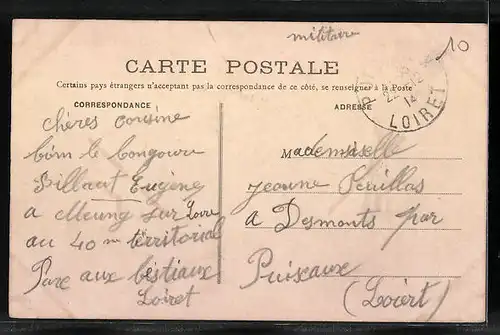 militaire
10
CARTE POSTALE
Certains pays étrangers n'acceptant pas la correspondance de ce côté, se renseigner à la Poste
CORRESPONDANCE
ADRESSE
14
LOIRET
chères cousine
bien le bongoure
Billaut Eugène
a Meung sur Loire
au 40me térritorial
Parc aux béstiaux
Loiret
Mademoiselle
jeanne Perillas
a Desmonts par
Puiseaux
(Loiert)